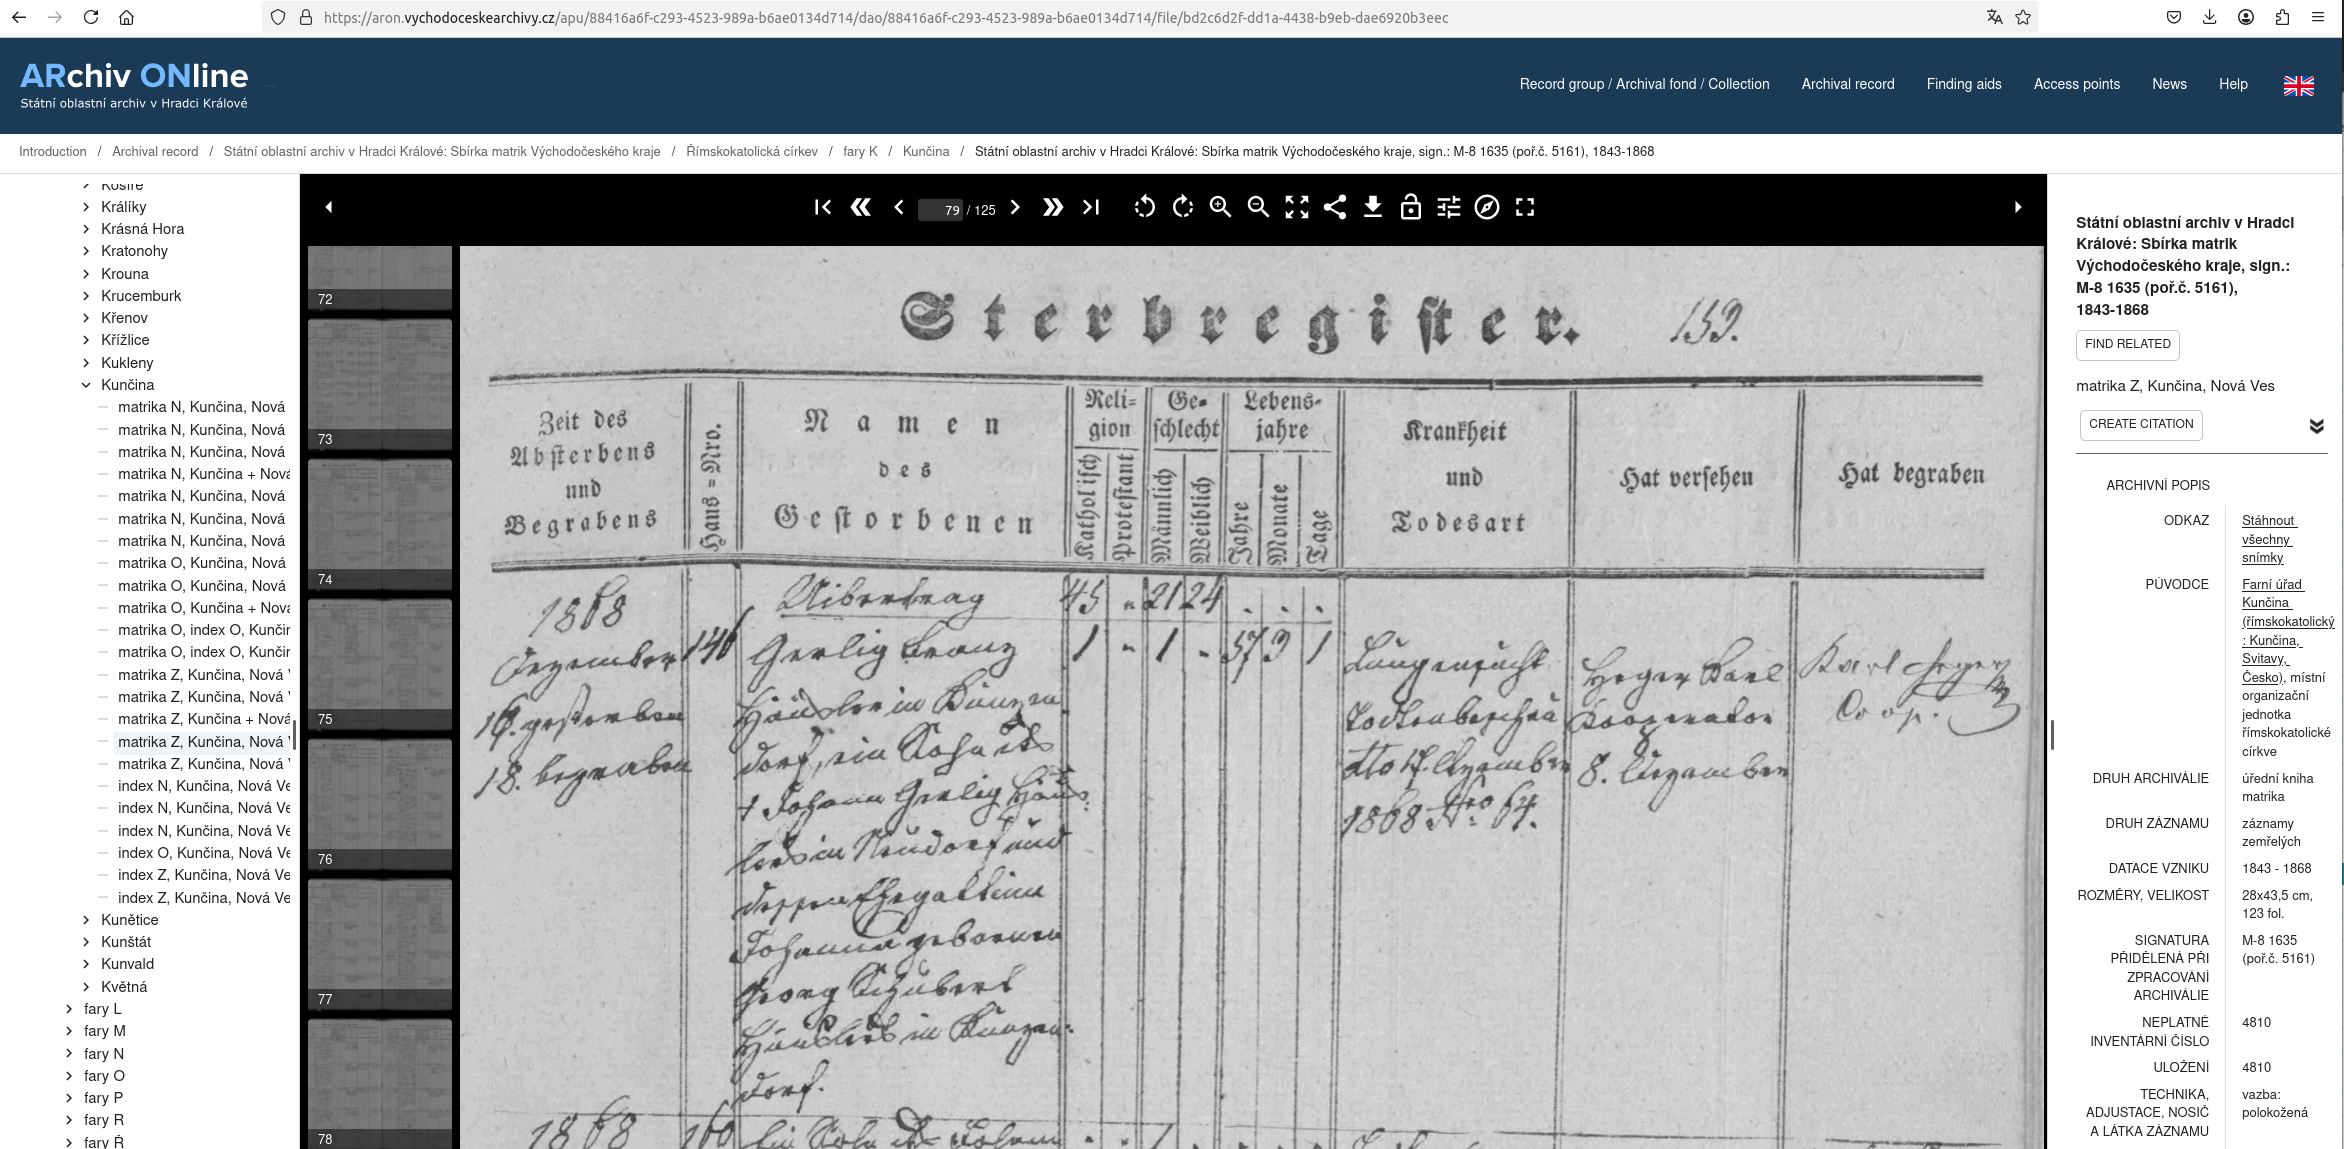 https://aron.vychodoceskearchivy.cz/apu/88416a6f-c293-4523-989a-b6ae0134d714/dao/88416a6f-c293-4523-989a-b6ae0134d714/file/bd2c6d2f-dd1a-4438-b9eb-dae6920b3eec
ARchiv ONline
Státní oblastní archiv v Hradci Králové
Record group / Archival fond / Collection
Archival record
Finding aids
Access points
News
Help
Introduction / Archival record / Státní oblastní archiv v Hradci Králové: Sbírka matrik Východočeského kraje / Římskokatolická církev / fary K / Kunčina / Státní oblastní archiv v Hradci Králové: Sbírka matrik Východočeského kraje, sign.: M-8 1635 (poř.č. 5161), 1843-1868
Košíře
Králíky
Krásná Hora
Kratonohy
Krouna
Krucemburk
Křenov
Křížlice
Kukleny
Kunčina
matrika N, Kunčina, Nová
matrika N, Kunčina, Nová
matrika N, Kunčina, Nová
matrika N, Kunčina + Nová
matrika N, Kunčina, Nová
matrika N, Kunčina, Nová
matrika N, Kunčina, Nová
matrika O, Kunčina, Nová
matrika O, Kunčina, Nová
matrika O, Kunčina + Nová
matrika O, index O, Kunčin
matrika O, index O, Kunčin
matrika Z, Kunčina, Nová V
matrika Z, Kunčina, Nová V
matrika Z, Kunčina + Nová
matrika Z, Kunčina, Nová V
matrika Z, Kunčina, Nová V
index N, Kunčina, Nová Ve
index N, Kunčina, Nová Ve
index N, Kunčina, Nová Ve
index O, Kunčina, Nová Ve
index Z, Kunčina, Nová Ve
index Z, Kunčina, Nová Ve
Kunětice
Kunštát
Kunvald
Květná
fary L
fary M
fary N
fary O
fary P
fary R
fary Ř
79 / 125
72
73
74
75
76
77
78
Sterbregister. 159.
Zeit des
Absterbens
und
Begrabens
Haus=Nro.
Namen
des
Gestorbenen
Reli-
gion
Katholisch
Protestant
Ge-
schlecht
Männlich
Weiblich
Lebens-
jahre
Jahre
Monate
Tage
Krankheit
und
Todesart
Hat versehen
Hat begraben
1868
Dezember
16. gestorben
18. begraben
146
Uibertrag 45 " 21 24 . . .
Gerlig Franz 1 - 1 - 57 3 1
Häusler in Kunzen
dorf, ein Sohn des
† Johann Gerlig Häus-
lers in Neudorf und
dessen Ehegattinn
Johanna gebornen
Georg Schubert
Häuslers in Kunzen-
dorf.
Lungensucht
Todtenbeschau
dto 17. Dezember
1868 Nro 64.
Heger Karl
Kooperator
8. Dezember
Karl Heger
Coop.
1868 160 Ein Sohn des Johann
Státní oblastní archiv v Hradci
Králové: Sbírka matrik
Východočeského kraje, sign.:
M-8 1635 (poř.č. 5161),
1843-1868
FIND RELATED
matrika Z, Kunčina, Nová Ves
CREATE CITATION
ARCHIVNÍ POPIS
ODKAZ
Stáhnout
všechny
snímky
PŮVODCE
Farní úřad
Kunčina
(římskokatolický
: Kunčina,
Svitavy,
Česko), místní
organizační
jednotka
římskokatolické
církve
DRUH ARCHIVÁLIE
úřední kniha
matrika
DRUH ZÁZNAMU
záznamy
zemřelých
DATACE VZNIKU
1843 - 1868
ROZMĚRY, VELIKOST
28x43,5 cm,
123 fol.
SIGNATURA
PŘIDĚLENÁ PŘI
ZPRACOVÁNÍ
ARCHIVÁLIE
M-8 1635
(poř.č. 5161)
NEPLATNÉ
INVENTÁRNÍ ČÍSLO
4810
ULOŽENÍ
4810
TECHNIKA,
ADJUSTACE, NOSIČ
A LÁTKA ZÁZNAMU
vazba:
polokožená